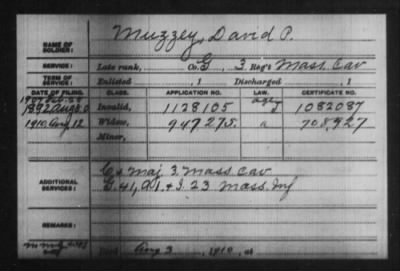 NAME OF SOLDIER: Muzzey, David P.
SERVICE: Late rank, Co. G, 3 Reg't Mass. Cav
TERM OF SERVICE: Enlisted , 1 Discharged , 1
DATE OF FILING. CLASS. APPLICATION NO. LAW. CERTIFICATE NO.
1907 Feb. 28
1892 Aug 50 Invalid, 1128105 1082087
1910, Aug 12 Widow, 947275. a 708,927
Minor,
ADDITIONAL SERVICES: Maj. 3. Mass. Cav
G. 41, & I. 23 Mass. Inf
REMARKS:
Died Aug 3, 1910, at